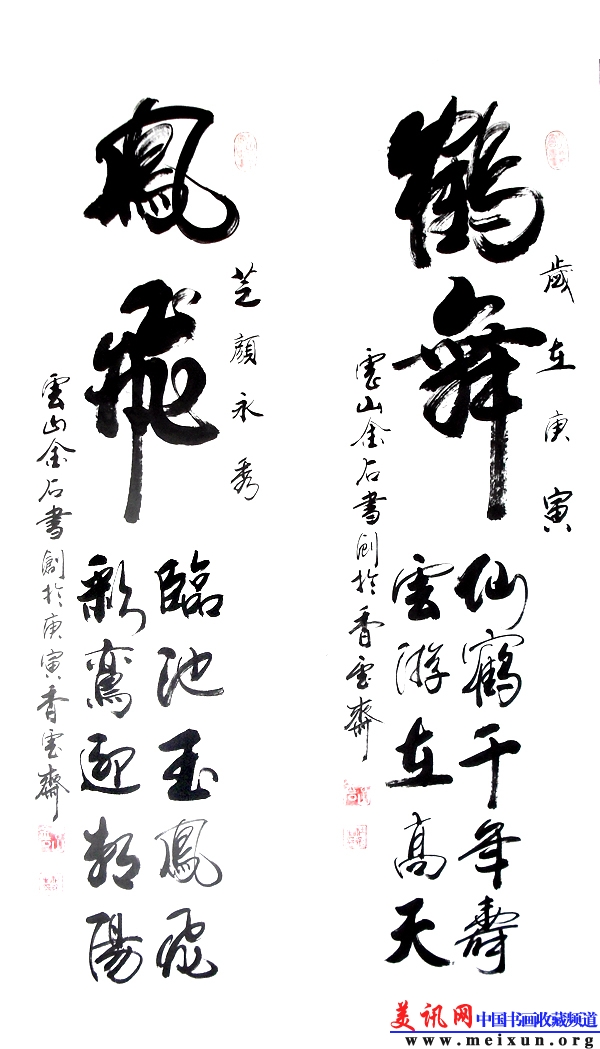 鶴舞
歲在庚寅
仙鶴千年壽
雲游在高天
雲山金石書創於香雲齋
鳳飛
芝顏永秀
臨池玉鳳飛
彩鸞迎朝陽
雲山金石書創於庚寅香雲齋
美讯网中国书画收藏频道
www.meixun.org